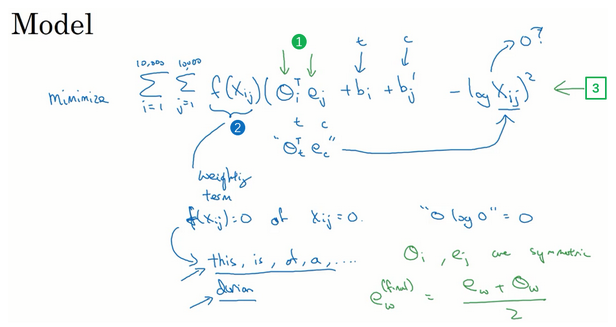 Model
1 t c 0?
minimize 10,000 Σ i=1 10,000 Σ j=1 f(Xij)(Θi^T ej + bi + bj' - log Xij)^2 ← 3
2 t c
"Θt^T ec"
weighting
term
f(Xij)=0 if Xij=0. "0 log 0" = 0
this, is, of, a, .... Θi, ej are symmetric
durian ew^(final) = (ew + Θw) / 2